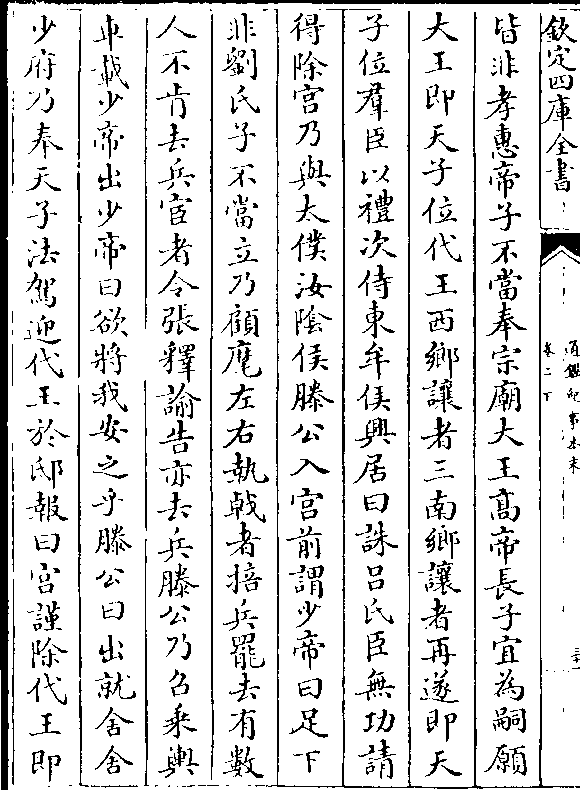 欽定四庫全書
通鑑紀事本末
卷二下
皆非孝惠帝子不當奉宗廟大王高帝長子宜為嗣願
大王即天子位代王西鄉讓者三南鄉讓者再遂即天
子位羣臣以禮次侍東牟侯興居曰誅呂氏臣無功請
得除宮乃與太僕汝陰侯滕公入宮前謂少帝曰足下
非劉氏子不當立乃顧麾左右執戟者掊兵罷去有數
人不肯去兵宦者令張釋諭告亦去兵滕公乃召乘輿
車載少帝出少帝曰欲將我安之乎滕公曰出就舍舍
少府乃奉天子法駕迎代王於邸報曰宮謹除代王即